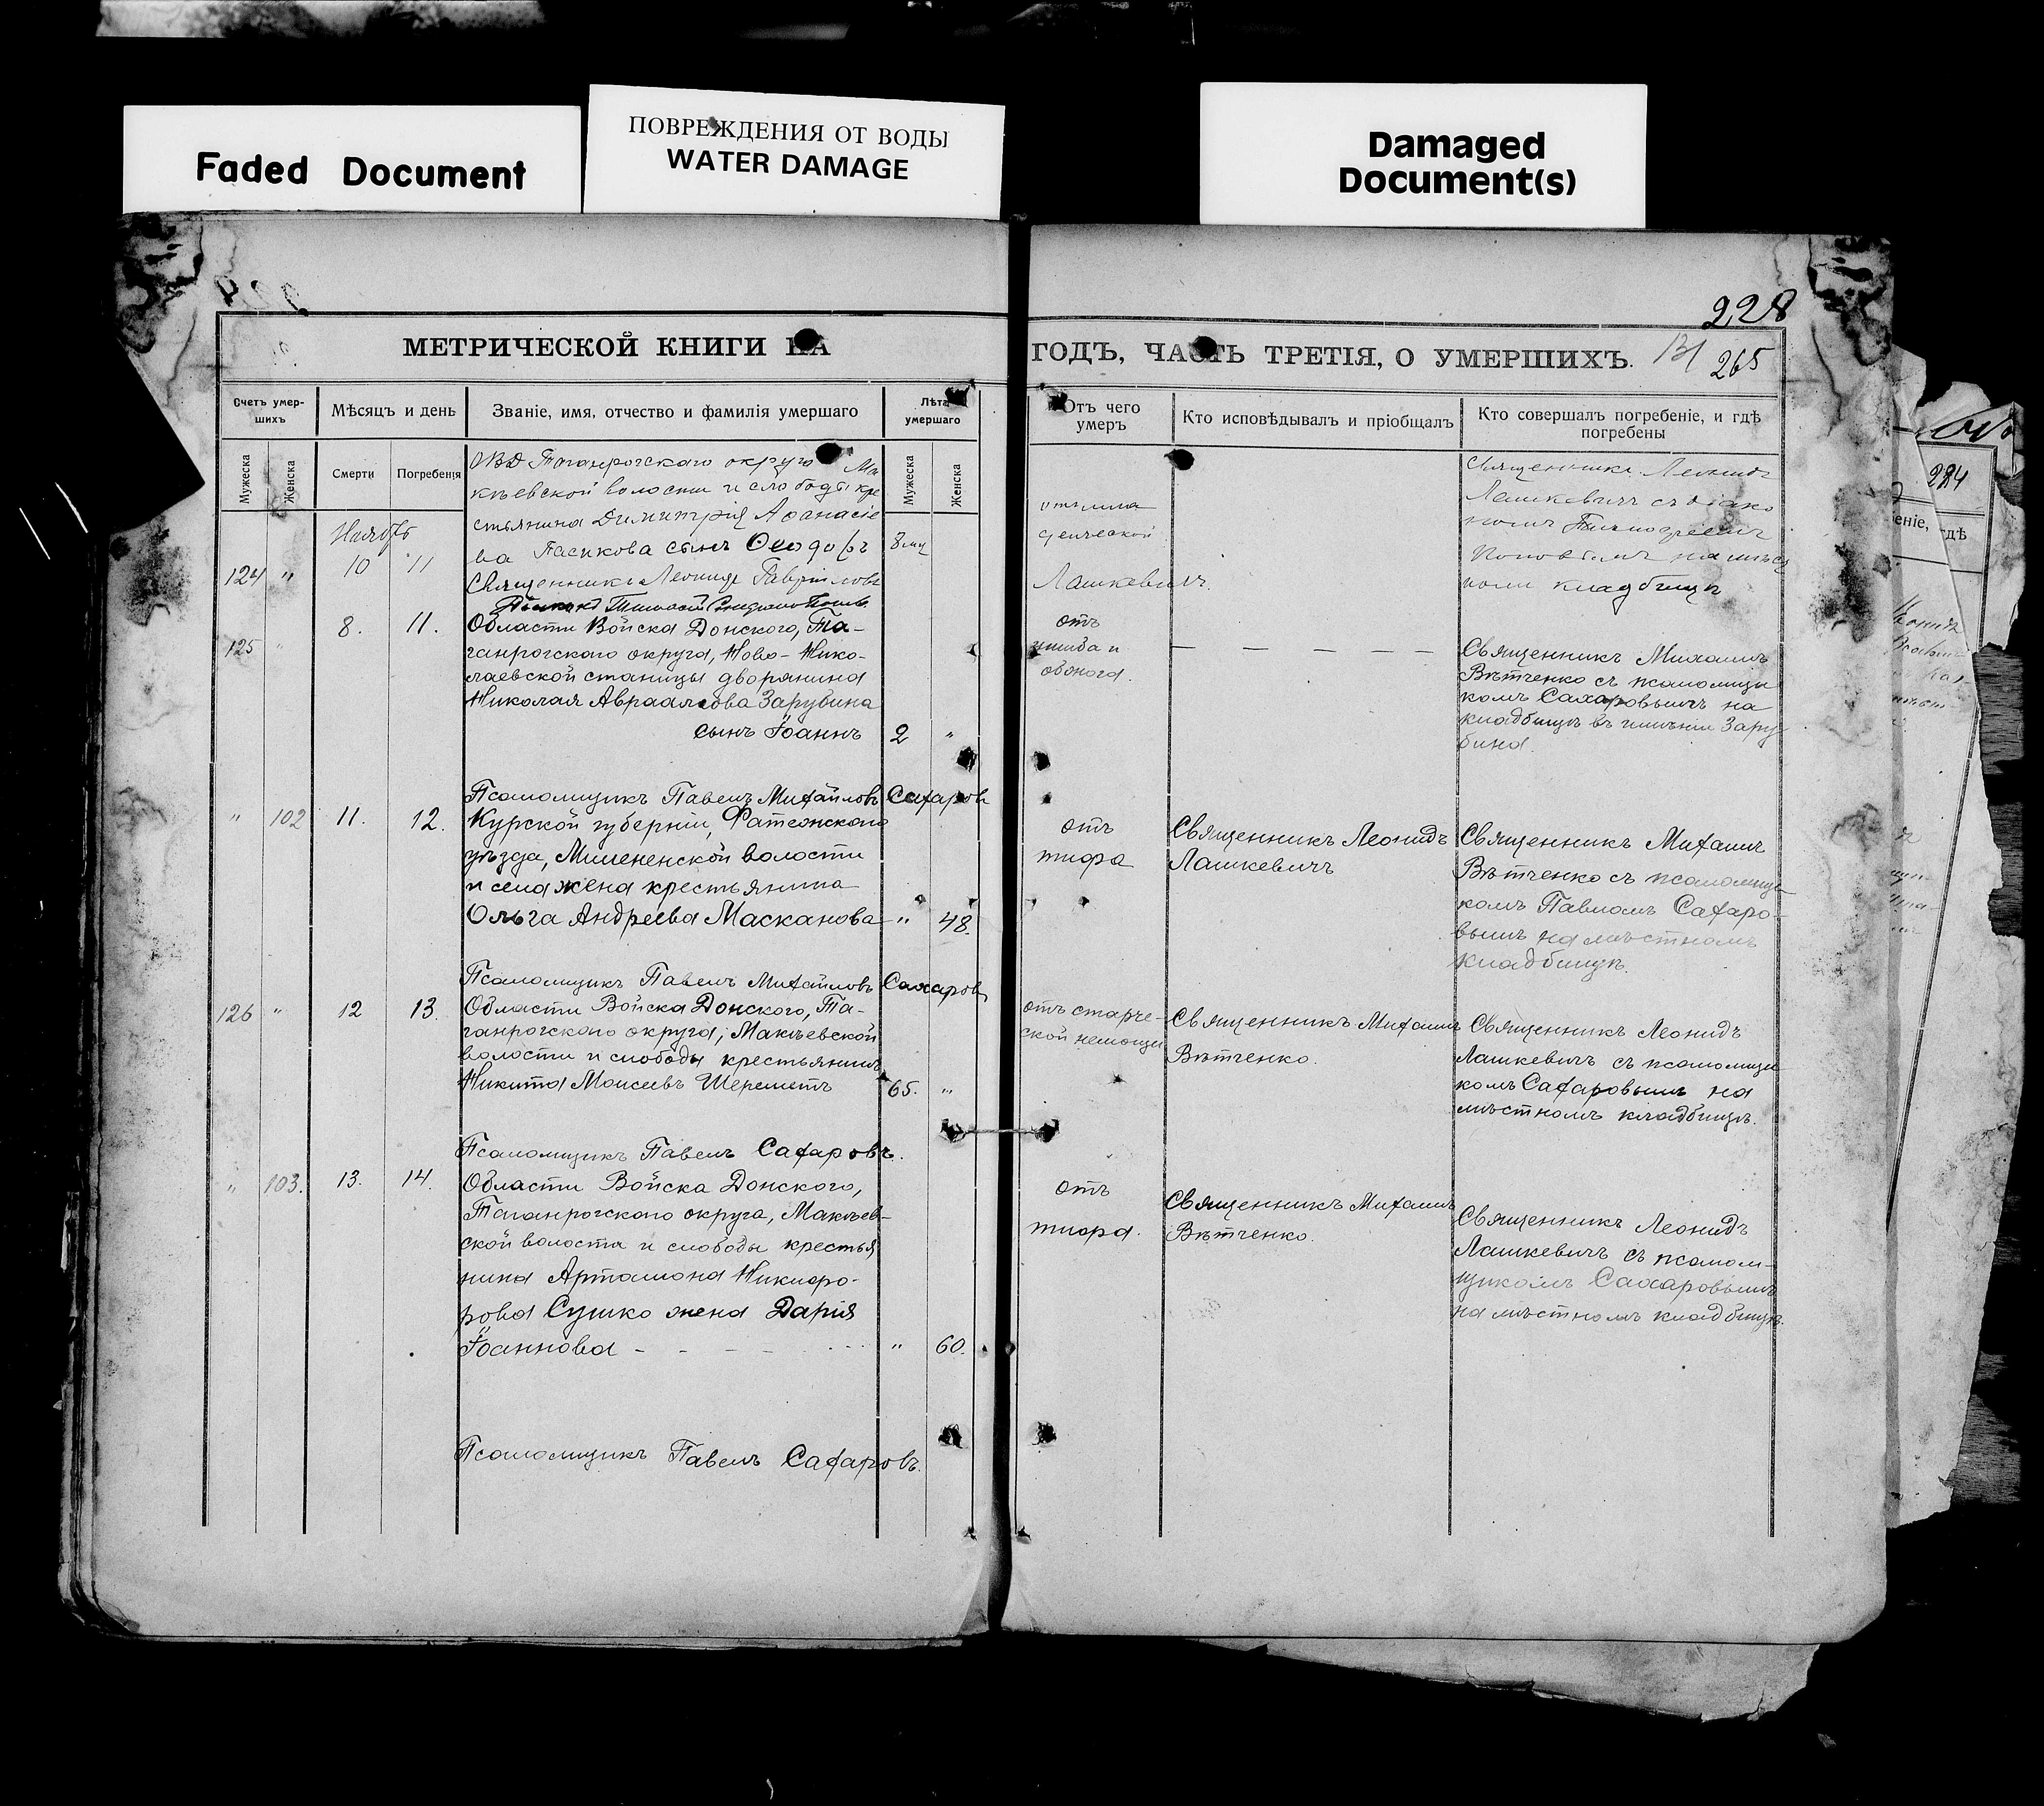 Faded Document
ПОВРЕЖДЕНИЯ ОТ ВОДЫ
WATER DAMAGE
Damaged
Document(s)
228
265
МЕТРИЧЕСКОЙ КНИГИ НА
ГОДЪ, ЧАСТЬ ТРЕТІЯ, О УМЕРШИХЪ.
Счетъ умер-
шихъ
Мѣсяцъ и день
Званіе, имя, отчество и фамилія умершаго
Лѣта
умершаго
Отъ чего
умеръ
Кто исповѣдывалъ и пріобщалъ
Кто совершалъ погребеніе, и гдѣ
погребены
Мужеска
Женска
Смерти
Погребенія
Мужеска
Женска
Ноябрь
124 " 10 11
ОВД Таганрогскаго округа Ма
кѣевской волости и слободы кре
стьянина Димитрія Аѳанасіе
ва Пасикова сынъ Ѳеодоръ
Священникъ Леонидъ Гавріиловъ
Лашкевичъ.
Священникъ Леонидъ
Лашкевичъ съ діако
номъ
Поповымъ на мѣст
номъ кладбищѣ
125 " 8. 11.
Области Войска Донского, Та-
ганрогскаго округа, Ново-Нико-
лаевской станицы дворянина
Николая Авраамова Зарубина
сынъ Іоаннъ 2 "
отъ
ушиба и
ожога.
Священникъ Михаилъ
Вѣтченко съ псаломщи
комъ Сахаровымъ на
кладбищѣ въ имѣніи Зару
бина.
Псаломщикъ Павелъ Михайловъ Сахаровъ
" 102 11. 12.
Курской губерніи, Фатежскаго
уѣзда, волости
и села жена крестьянина
Ольга Андреева Масканова " 48.
отъ
тифа
Священникъ Леонидъ
Лашкевичъ
Священникъ Михаилъ
Вѣтченко съ псаломщи
комъ Павломъ Сахаро-
вымъ на мѣстномъ
кладбищѣ.
Псаломщикъ Павелъ Михайловъ Сахаровъ
126 " 12 13.
Области Войска Донского, Та-
ганрогскаго округа, Макѣевской
волости и слободы крестьянинъ
Никита Моисеевъ Шереметъ 65. "
отъ старче-
ской немощи
Священникъ Михаилъ
Вѣтченко.
Священникъ Леонидъ
Лашкевичъ съ псаломщи
комъ Сахаровымъ на
мѣстномъ кладбищѣ.
Псаломщикъ Павелъ Сахаровъ.
" 103. 13. 14.
Области Войска Донского,
Таганрогскаго округа, Макѣев-
ской волости и слободы крестья
нина Артамона Никифо-
рова Сушко жена Дарія
Іоаннова " 60.
отъ
тифа.
Священникъ Михаилъ
Вѣтченко.
Священникъ Леонидъ
Лашкевичъ съ псалом-
щикомъ Сахаровымъ
на мѣстномъ кладбищѣ.
Псаломщикъ Павелъ Сахаровъ.